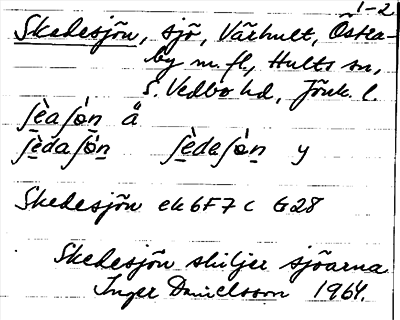 1-2
Skedesjön, sjö, Värhult, Östra-
by m. fl., Hults sn,
S. Vedbo hd, Jönk. l.
ʃèaʃòn ä
ʃèdaʃòn ʃèdaʃòn y
Skedesjön ek 6F7c G28
Skedesjön skiljer sjöarna
Inger Danielsson 1964.